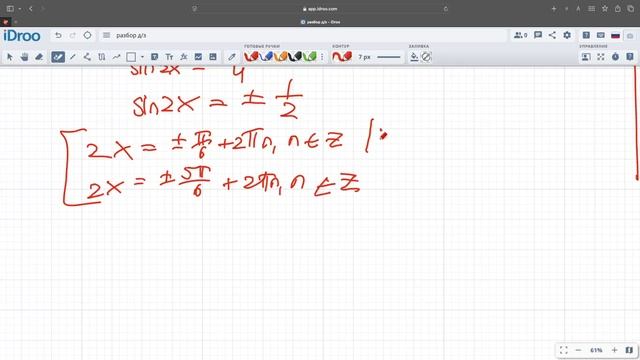 app.idroo.com
разбор д/з – iDroo
iDroo
разбор д/з
ГОТОВЫЕ РУЧКИ
КОНТУР
ЗАЛИВКА
УПРАВЛЕНИЕ
7 px
0
sin2x = 4
sin2x = ± 1/2
2x = ± π/6 + 2πn, n ∈ Z | :
2x = ± 5π/6 + 2πn, n ∈ Z
61%